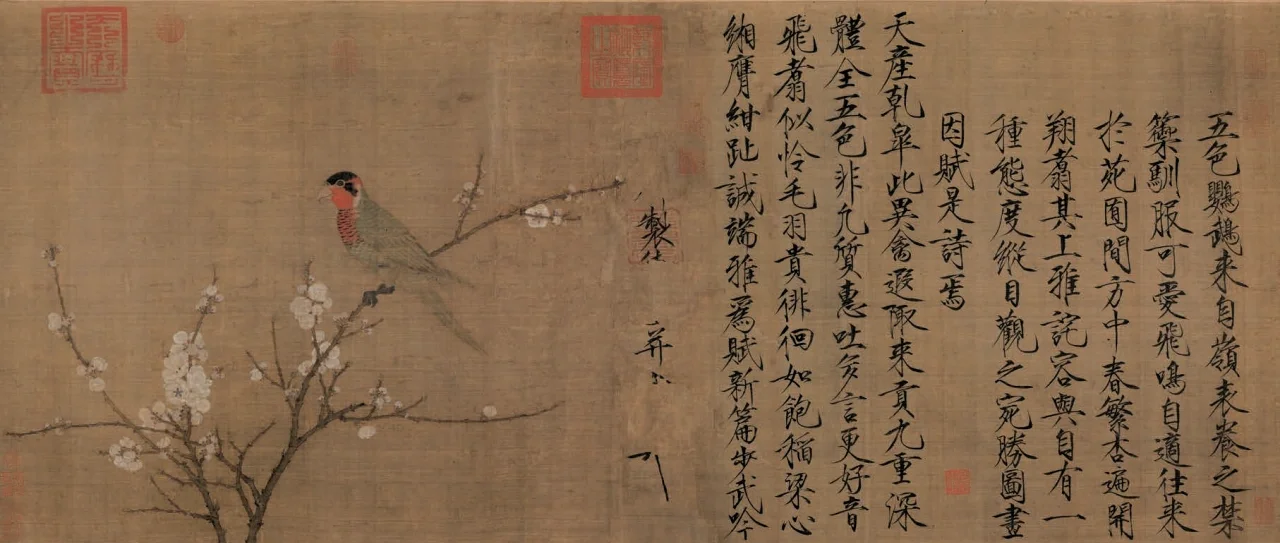 五色鸚鵡来自嶺表養之禁
籞馴服可愛飛鳴自適往来
於苑囿間方中春繁杏遍開
翔翥其上雅詫容與自有一
種態度縱目觀之宛勝圖畫
因賦是詩焉
天産乹皐此異禽遐陬来貢九重深
體全五色非凡質惠吐多言更好音
飛翥似怜毛羽貴徘徊如飽稻粱心
緗膺紺趾誠端雅爲賦新篇步武吟
製
并